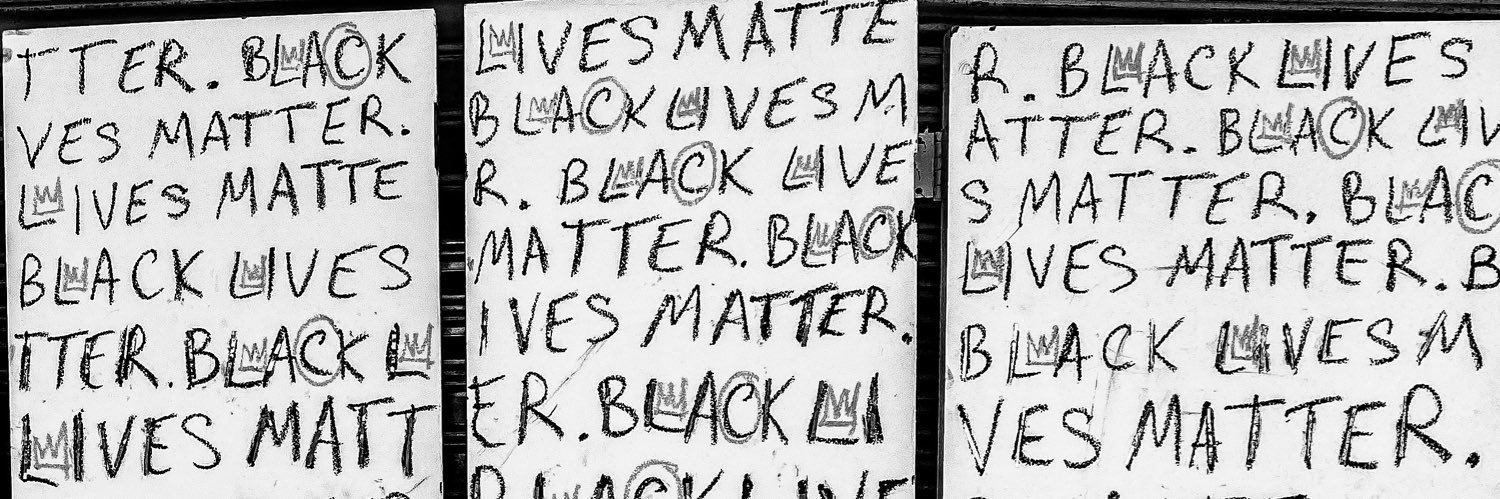 TTER. BLACK
VES MATTER.
LIVES MATTE
BLACK LIVES
TTER. BLACK L
LIVES MATT
LIVES MATTE
BLACK LIVES M
R. BLACK LIVE
MATTER. BLACK
IVES MATTER.
ER. BLACK LI
R BLACK LIVE
R. BLACK LIVES
ATTER. BLACK LIV
S MATTER. BLAC
LIVES MATTER. B
BLACK LIVES M
VES MATTER.